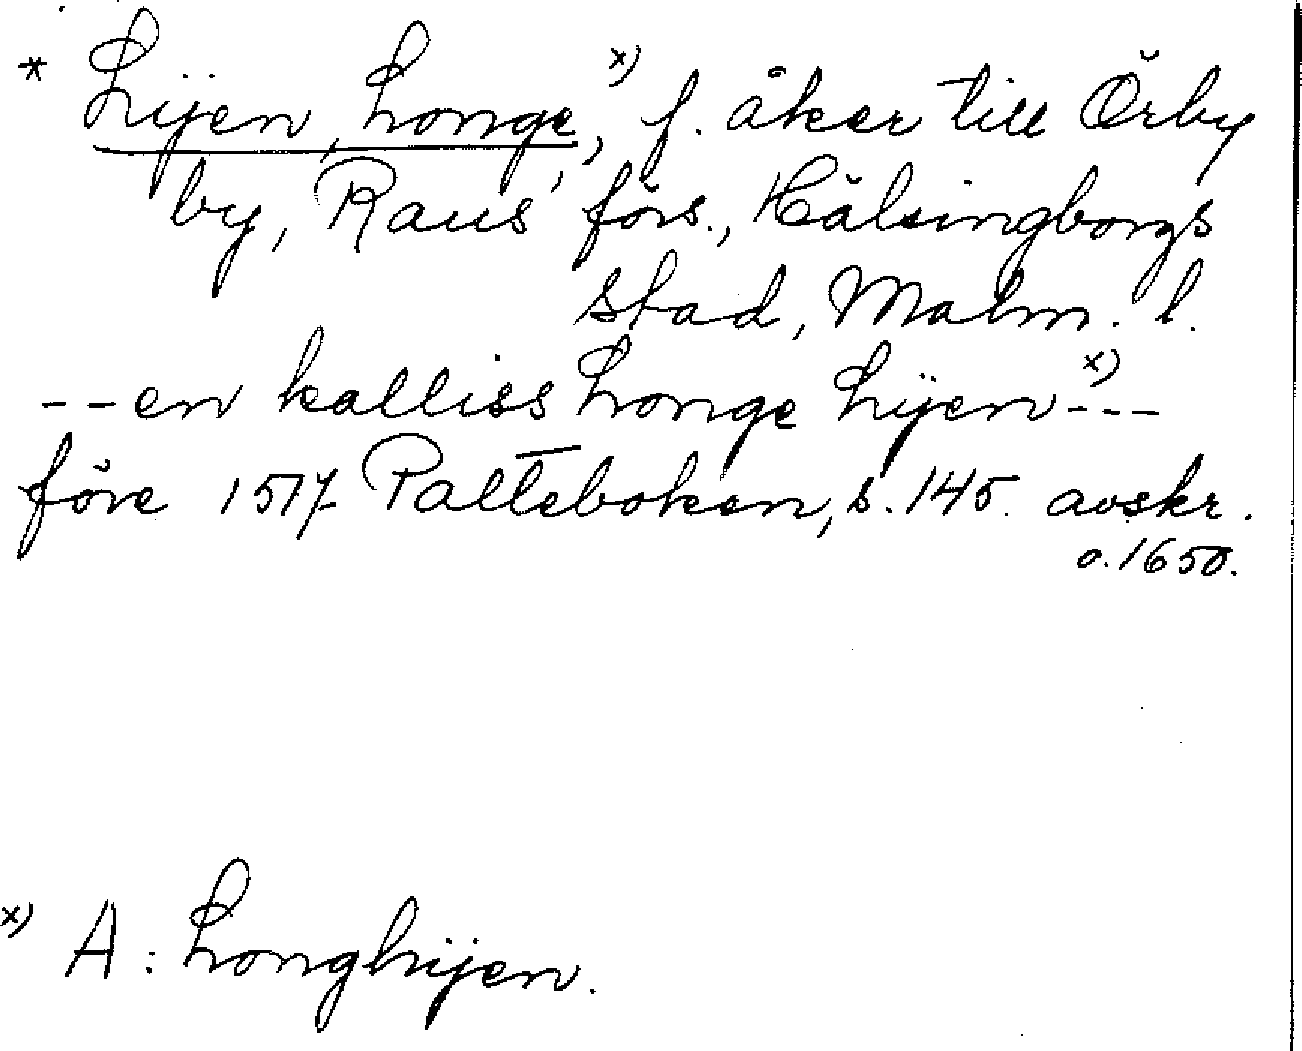 * Lijen, Longe, x) f. åker till Örby
by, Raus' förs., Hälsingborgs
stad, Malm. l.
--en kalliss Longe Lijen x) ---
före 1517 Palteboken, s. 145. avskr.
o. 1650.
x) A: Longhijen.